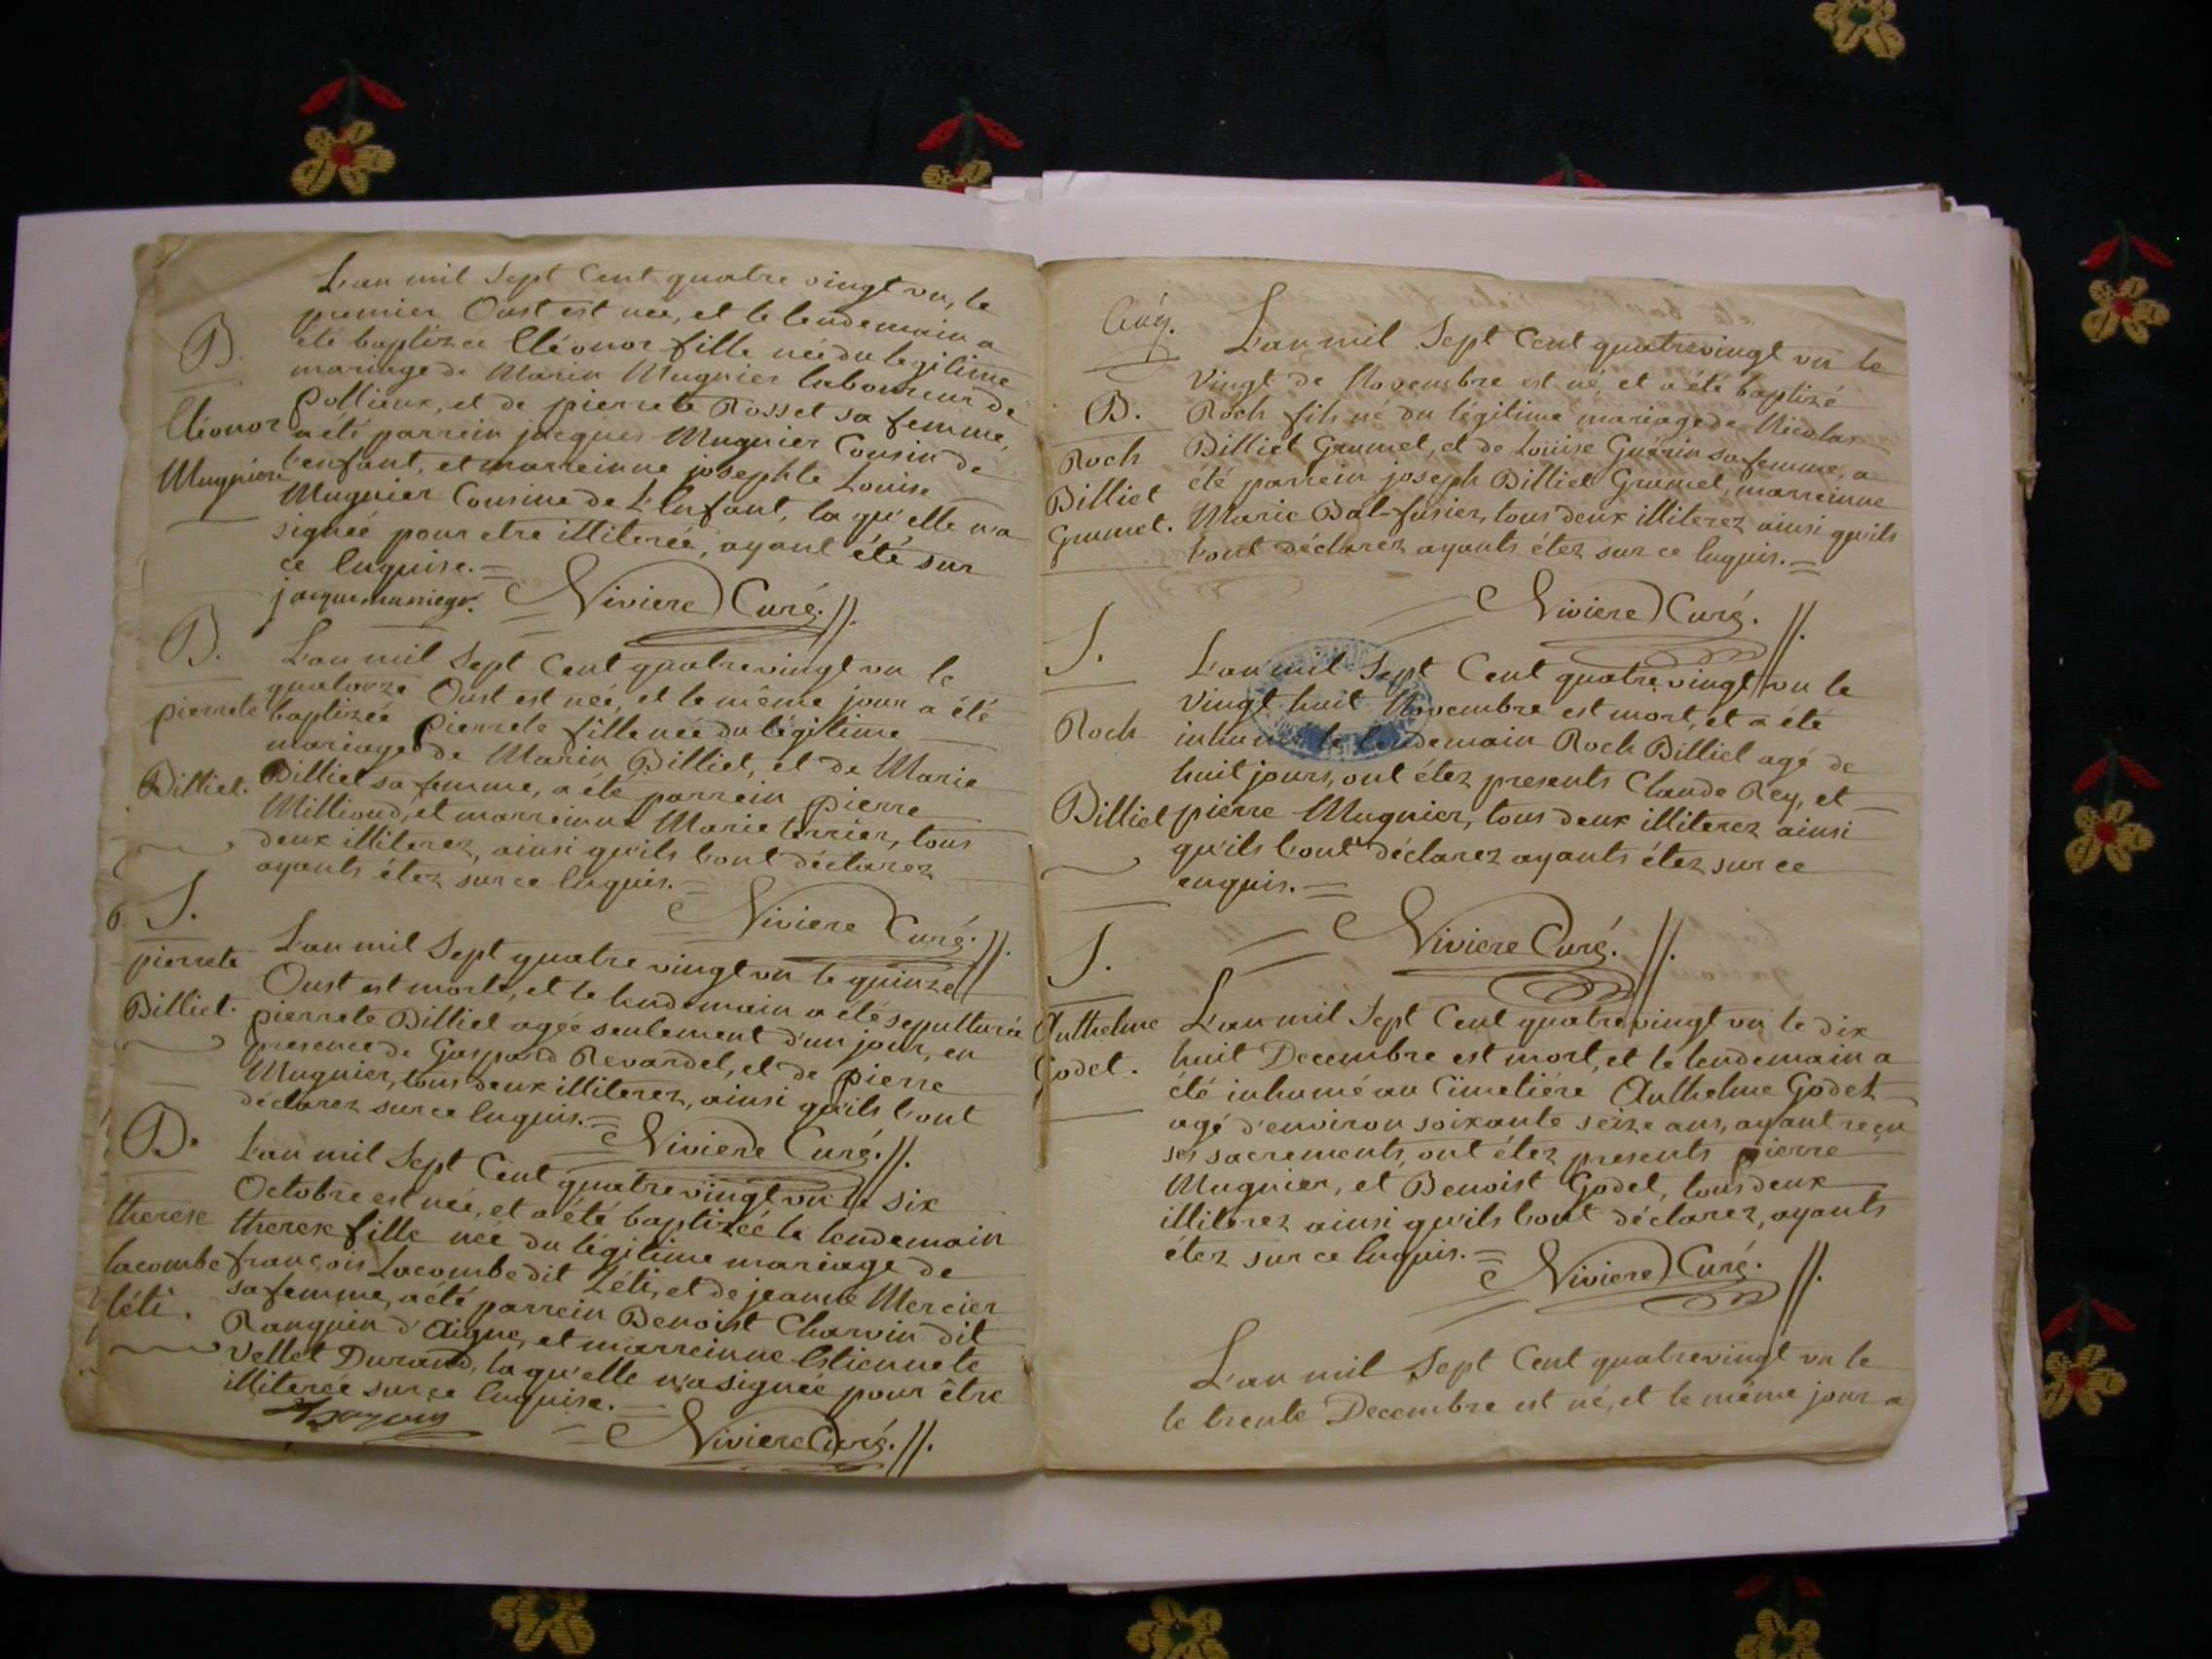 L'an mil Sept Cent quatre vingt un, le
premier Oust est née, et le lendemain a
B.
été baptizée Eléonor fille née du legitime
mariage de Marin Mugnier laboureur de
Pollieux, et de pierrete Rosset sa femme,
Eléonor
a été parrein jacques Mugnier Cousin de
Mugnière
l'enfant, et marreinne josephte Louise
Mugnier Cousine de L'Enfant, la qu'elle n'a
signée pour etre illiterée, ayant été sur
ce Enquise.=
Niviere Curé.//.
B.
L'an mil Sept Cent quatrevingt un le
quatorze Oust est née, et le même jour a été
pierrete
baptizée pierrete fille née du légitime
mariage de Marin Billiet, et de Marie
Billiet.
Billiet sa femme, a été parrein pierre
Milliond, et marreinne Marie terrier, tous
deux illiterez, ainsi qu'ils l'ont déclarez
ayants étez sur ce Enquis.=
Niviere Curé.//.
S.
pierrete
L'an mil Sept quatre vingt un le quinze
Oust est morte, et le lendemain a été sepulturée
Billiet.
pierrete Billiet agée seulement d'un jour, en
presence de Gaspard Revardel, et de pierre
Mugnier, tous deux illiterez, ainsi qu'ils l'ont
déclarez sur ce Enquis.=
Niviere Curé.//.
B.
L'an mil Sept Cent quatrevingt un le six
Octobre est née, et a été baptizée le lendemain
therese
therese fille née du légitime mariage de
lacombe
françois Lacombe dit Léti, et de jeanne Mercier
léti.
sa femme, a été parrein Benoist Charvin dit
Ranquin d'Aigne, et marreinne Estiennete
Vellet Durand, la qu'elle n'a signée pour être
illiterée sur ce Enquise.=
Niviere Curé.//.
L'an mil Sept Cent quatrevingt un le
Vingt de Novembre est né, et a été baptizé
B.
Roch fils né du légitime mariage de Nicolas
Roch
Billiet Grumel, et de Louise Guérin sa femme, a
Billiet
été parrein joseph Billiet Grumel, marreinne
Grumel.
Marie Bal-fusier, tous deux illiterez ainsi qu'ils
l'ont déclarez ayants étez sur ce Enquis.=
Niviere Curé.//.
S.
L'an mil Sept Cent quatrevingt un le
Vingt huit Novembre est mort, et a été
Roch
inhumé le lendemain Roch Billiet agé de
huit jours, ont étez presents Claude Rey, et
Billiet
pierre Mugnier, tous deux illiterez ainsi
qu'ils l'ont déclarez ayants étez sur ce
enquis.=
Niviere Curé.//.
S.
Anthelme
L'an mil Sept Cent quatrevingt un le dix
Godet.
huit Decembre est mort, et le lendemain a
été inhumé au Cimetiére Anthelme Godet
agé d'environ soixante seize ans, ayant reçu
ses sacrements, ont étez presents pierre
Mugnier, et Benoist Godet, tous deux
illiterez ainsi qu'ils l'ont déclarez, ayants
étez sur ce Enquis.=
Niviere Curé.//.
L'an mil Sept Cent quatrevingt un le
le trente Decembre est né, et le même jour a